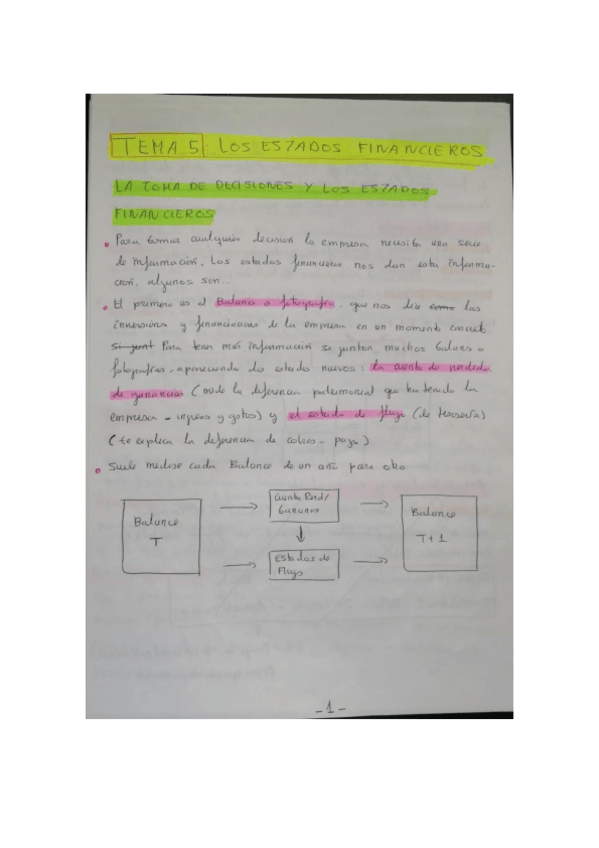 TEMA 5: LOS ESTADOS FINANCIEROS
LA TOMA DE DECISIONES Y LOS ESTADOS
FINANCIEROS
Para tomar cualquier decision la empresa necesita una serie
de información. Los estados financieros nos dan esta informa-
ción, algunos son...
El primero es el Balance o fotografía, que nos dice como las
inversiones y financiaciones de la empresa en un momento concreto.
Si junt Para tener más información se juntan muchos balances o
fotografías, apareciendo dos estados nuevos: la cuenta de perdidas
de ganancias (mide la diferencia patrimonial que ha tenido la
empresa - ingresos y gastos) y el estado de flujo (de tesorería)
(te explica la diferencia de cobros - pagos)
Suele medirse cada Balance de un año para otro
Balance
T
Cuenta Perd/
Ganancias
Estados de
Flujo
Balance
T+1
-1-